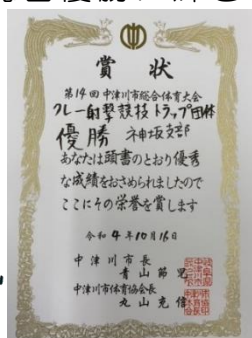 賞状
第14回中津川市総合体育大会
クレー射撃競技トラップ団体
優勝 神坂支部
あなたは頭書のとおり優秀
な成績をおさめられましたので
ここにその栄誉を賞します
令和4年10月16日
中津川市長
青山節児
中津川市体育協会長
丸山充信